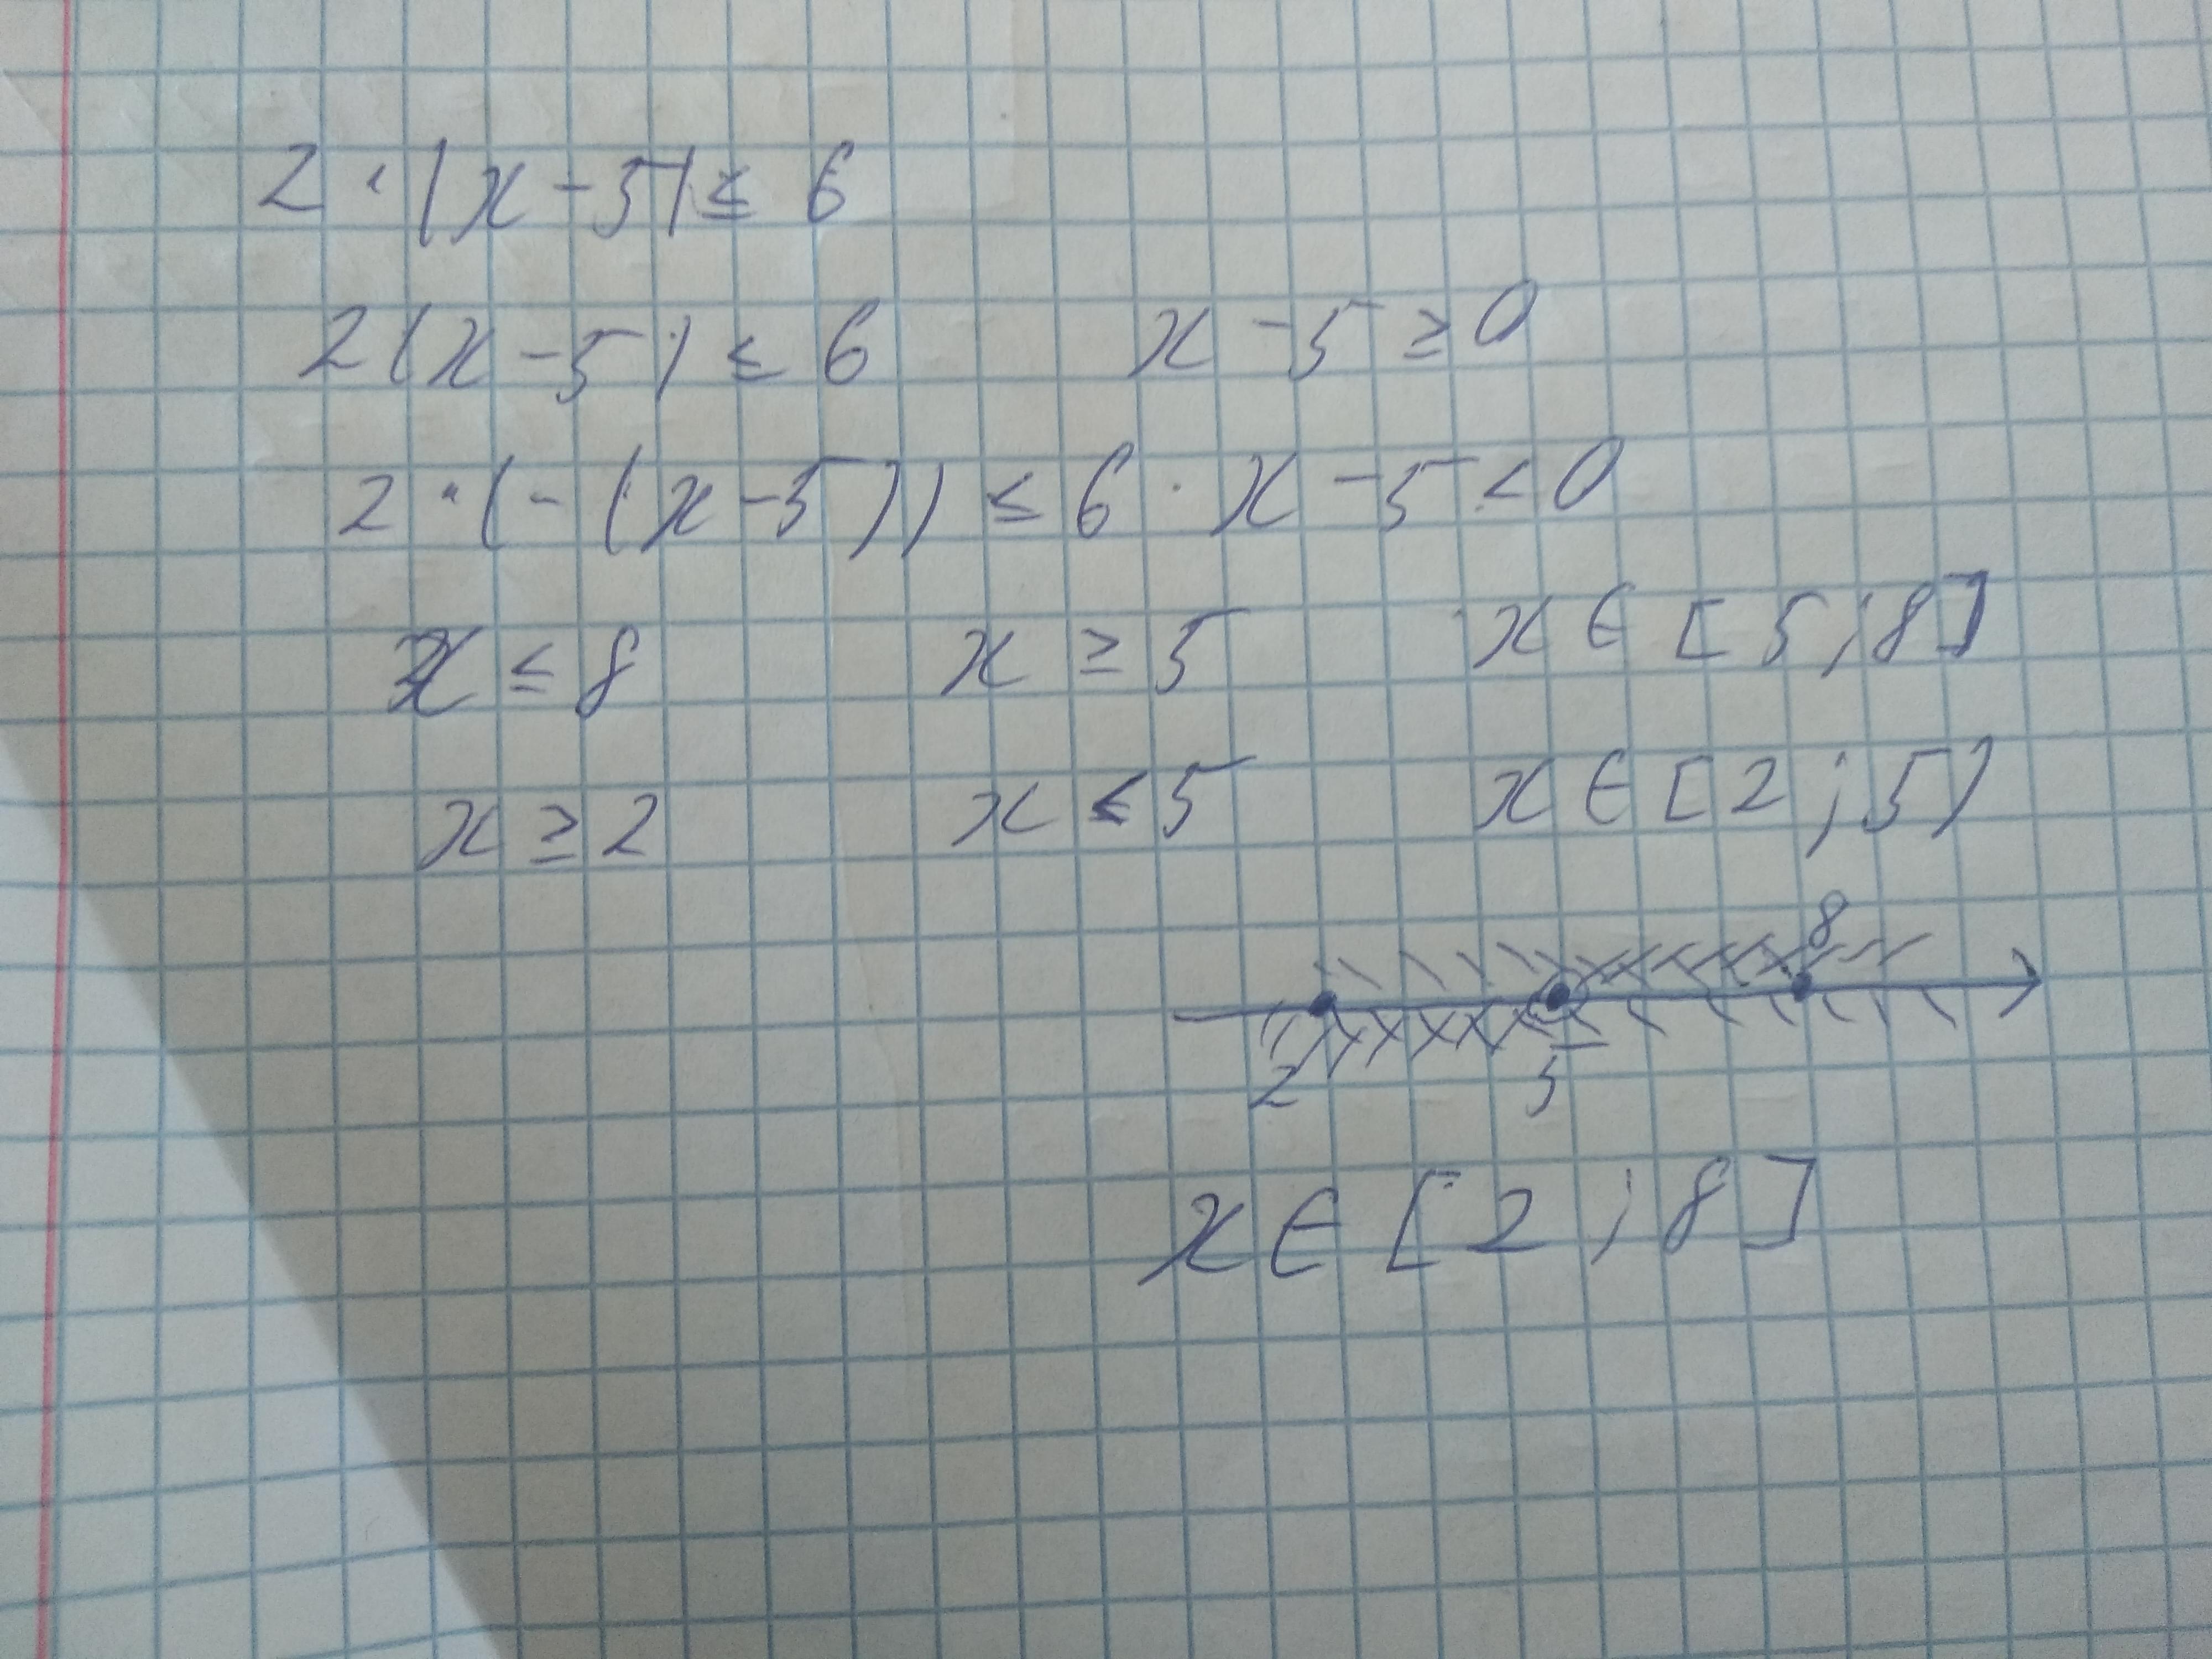 2 · |x - 5| ≤ 6
2(x - 5) ≤ 6 x - 5 ≥ 0
2 · (-(x - 5)) ≤ 6 x - 5 < 0
x ≤ 8 x ≥ 5 x ∈ [5; 8]
x ≥ 2 x < 5 x ∈ [2; 5)
8
2 5
x ∈ [2; 8]